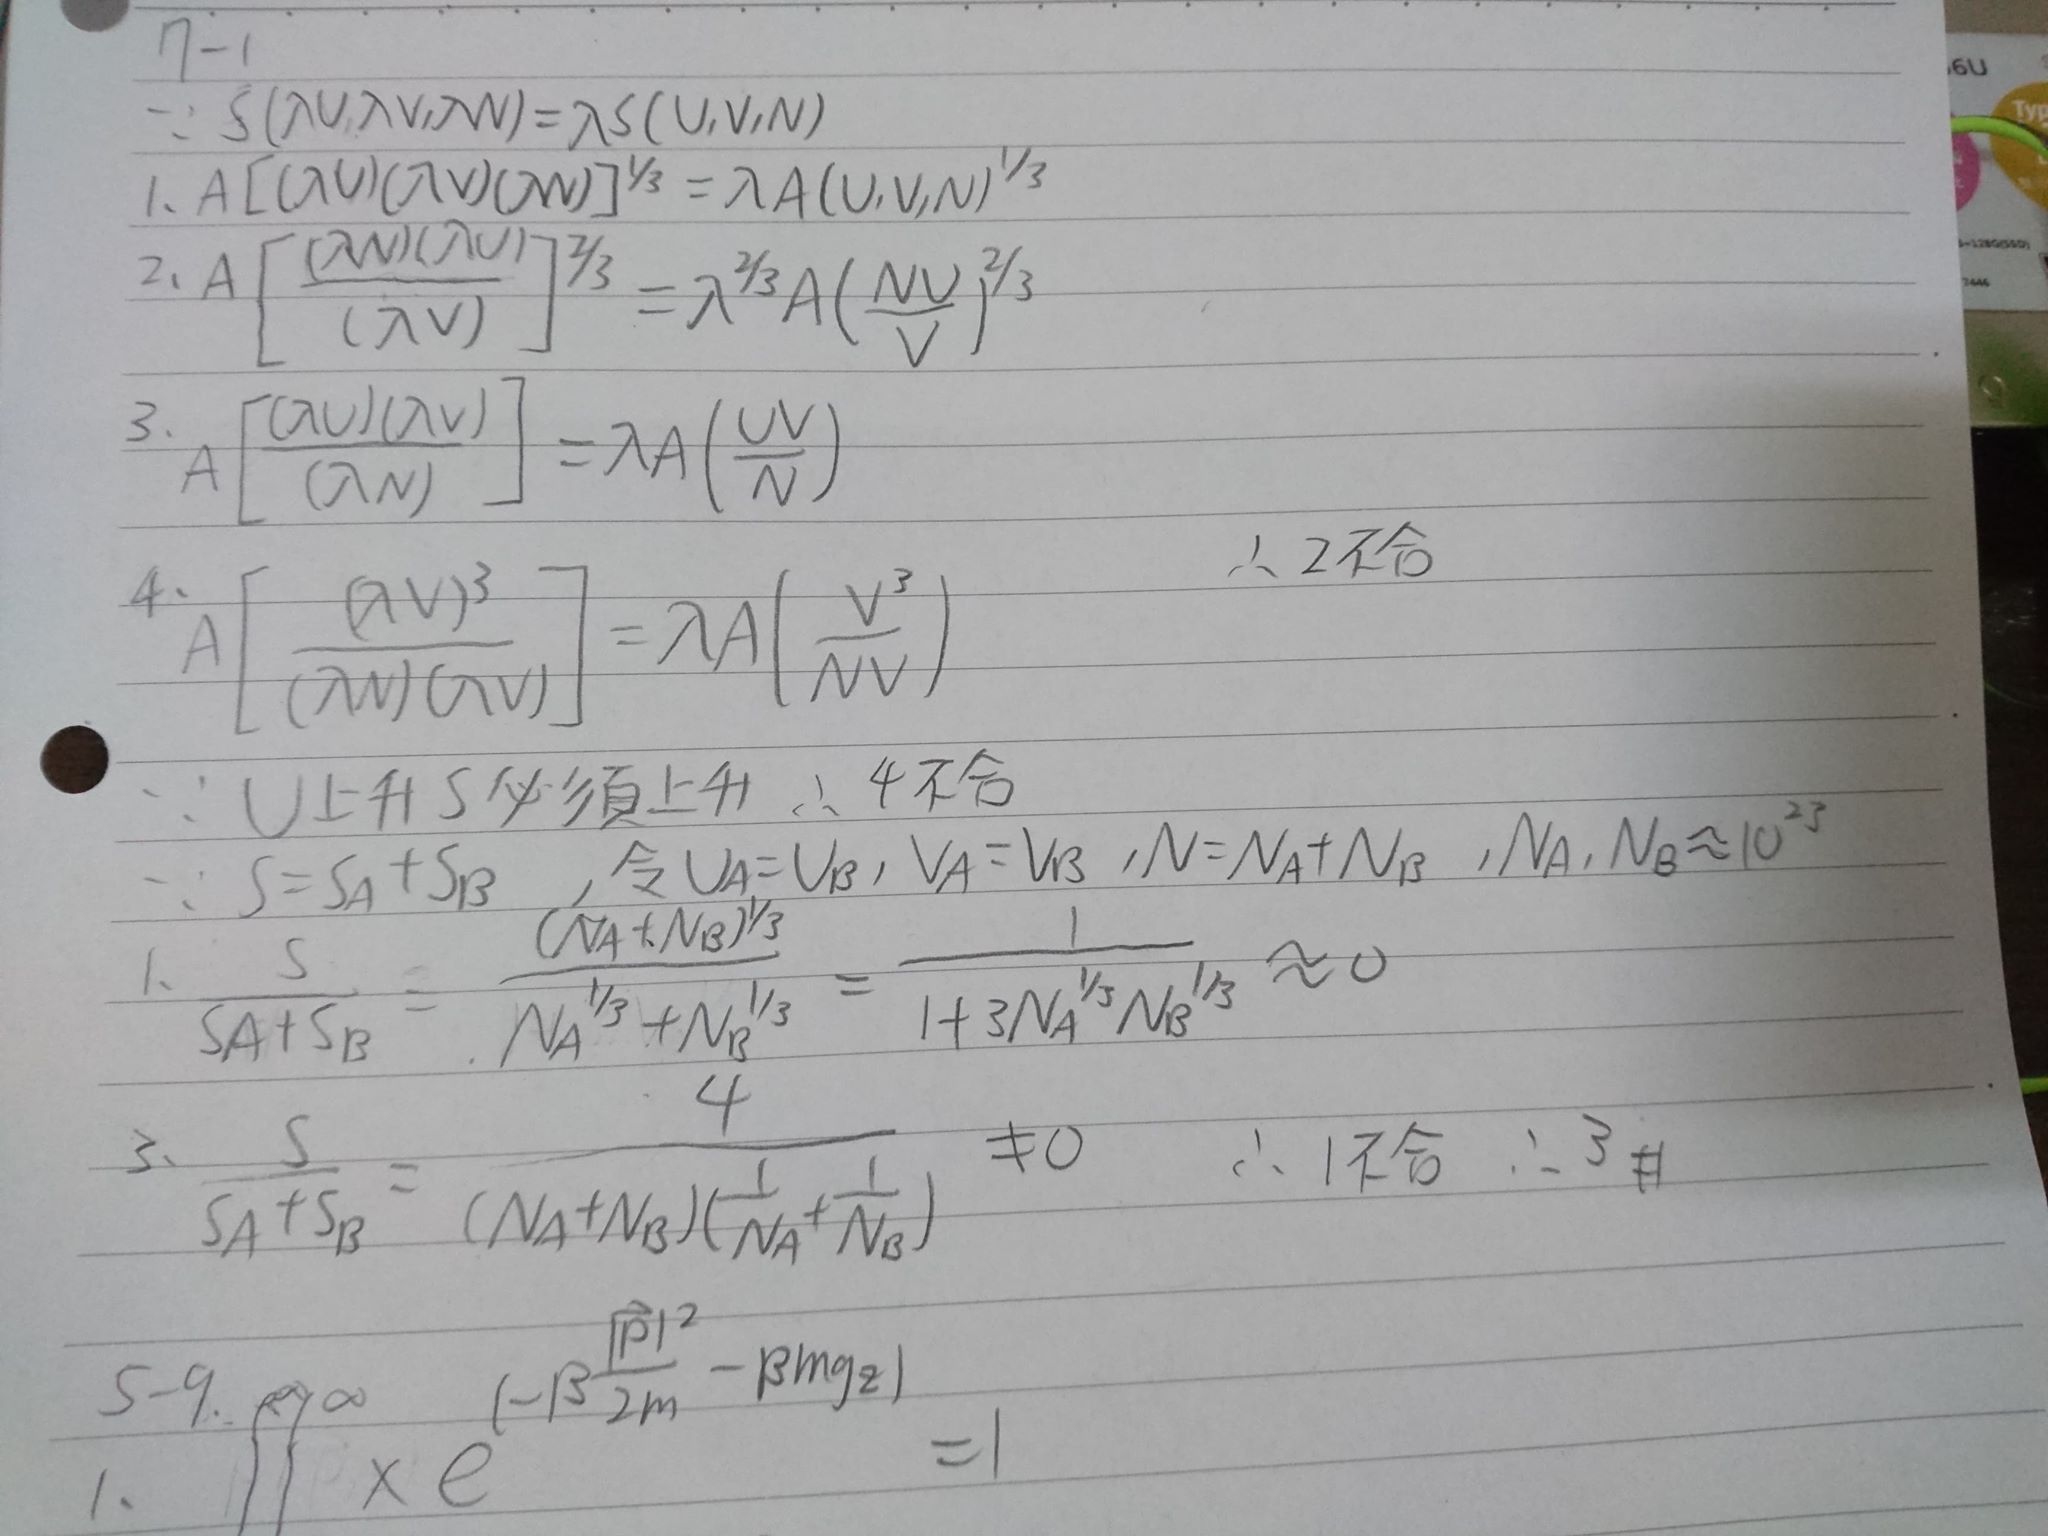 7-1
∵ S(λU,λV,λN)=λS(U,V,N)
1. A[(λU)(λV)(λN)]^1/3 = λA(U,V,N)^1/3
2. A[(λN)(λU)/(λV)]^2/3 = λ^2/3 A(NU/V)^2/3
3. A[(λU)(λV)/(λN)] = λA(UV/N)
∴ 2不合
4. A[(λV)^3/(λN)(λV)] = λA(V^3/NV)
∵ U上升 S必須上升 ∴ 4不合
∵ S=SA+SB , 令UA=UB, VA=VB , N=NA+NB , NA, NB≈10^23
1. S/(SA+SB) = (NA+NB)^1/3/(NA^1/3+NB^1/3) = 1/(1+3NA^1/3NB^1/3) ≈0
3. S/(SA+SB) = 4/((NA+NB)(1/NA+1/NB)) ≠0 ∴ 1不合 ∴ 3 #
5-9.
1. ∬^∞ x e^(-β|p⃗|^2/2m - βmgz) =1
6U
Typ